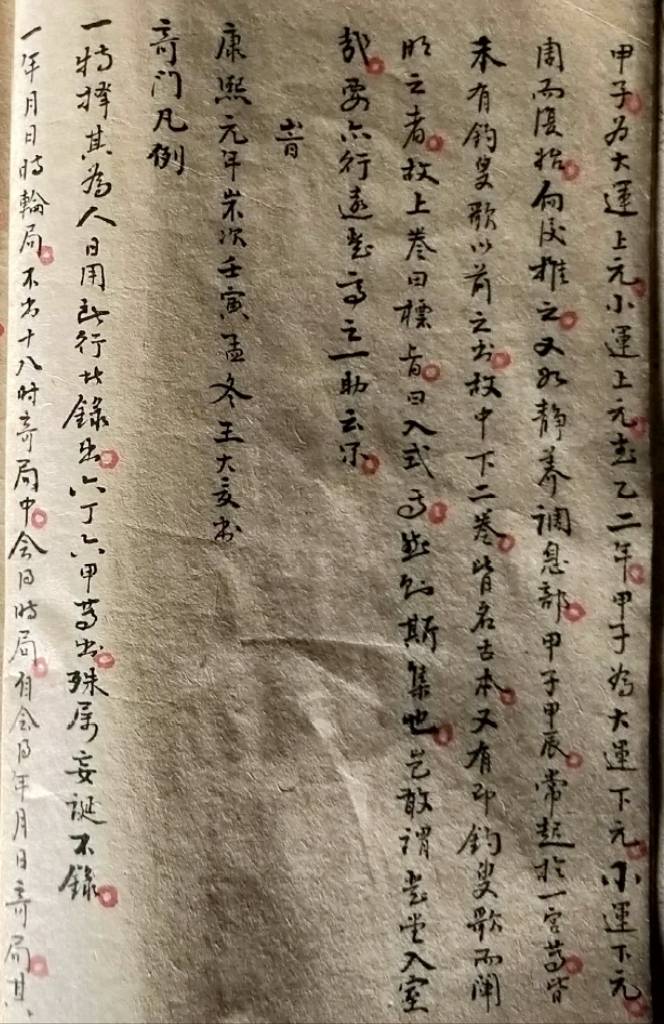 甲子为大運上元小運上元起乙二年甲子為大運下元小運下元
周而復始向後推之又如静养调息部甲子甲辰常起於一宫等皆
未有釣叟歌以前之書故中下二卷皆名古本又有即釣叟歌而闡
明之者故上卷曰標旨曰入式等然则斯集也岂敢谓登堂入室
哉要亦行遠登高之一助云尔
旹
康熙元年岁次壬寅孟冬王大
奇门凡例
一特择其為人日用所行者錄出六丁六甲等出殊属妄誕不錄
一年月日時輪局不出十八时奇局中会日時局自会日年月日奇局其